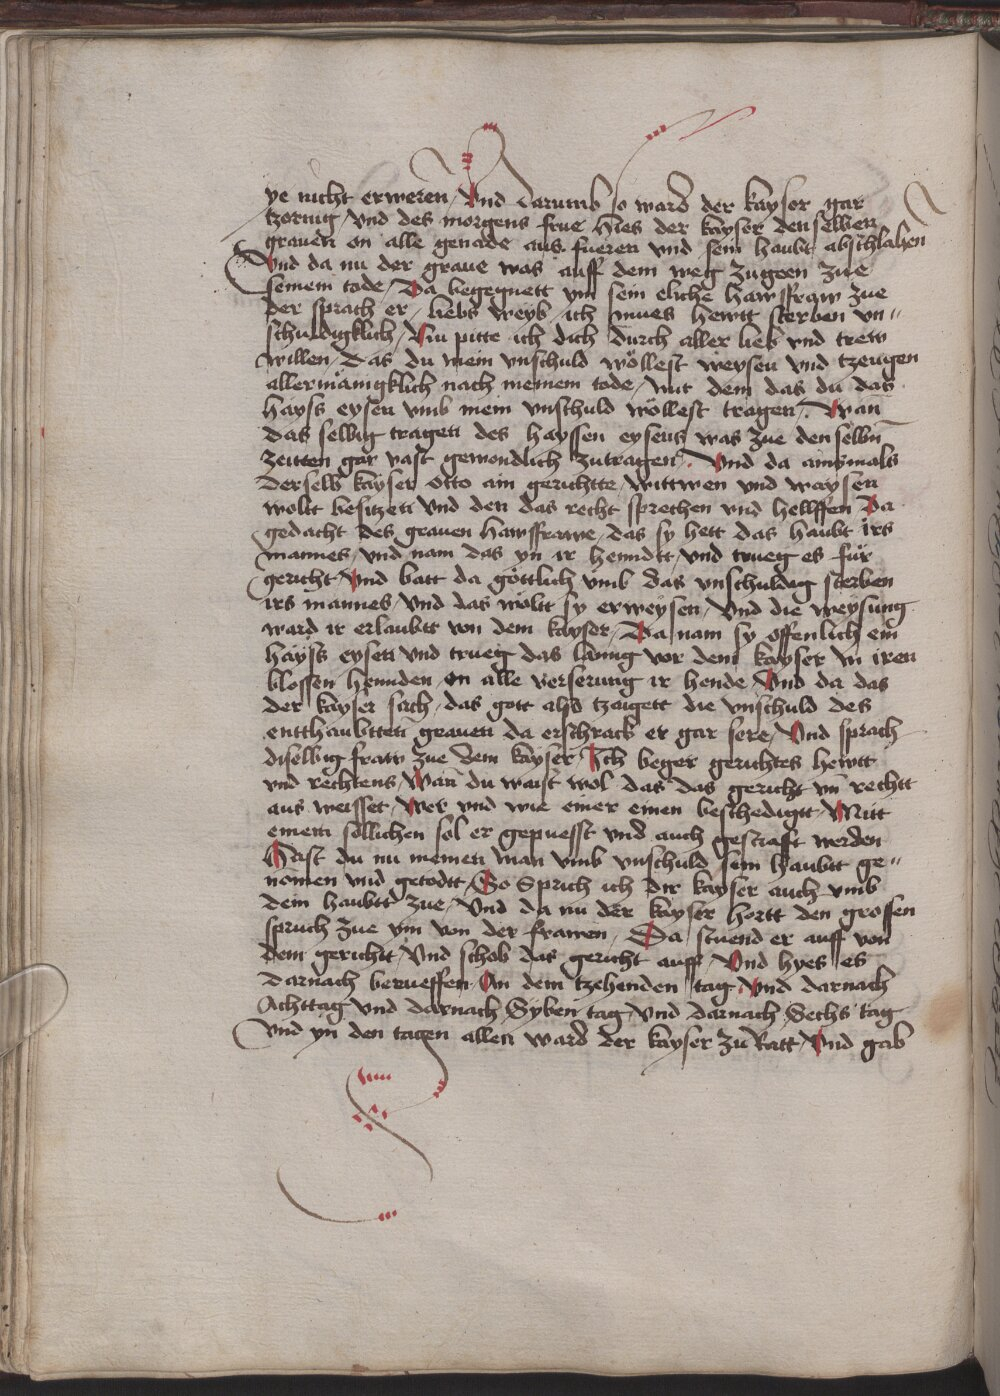 ye nicht erweren / Vnd darumb so ward der kayser gar
tzornig / vnd des morgens frue Hies der kayser den selben
grauen on alle genade aus fueren vnd sein haubt abschlahen
Vnd da nu der graue was auff dem weg zugeen zue
seinem tode / Da begegnett ym sein eliche hawsffraw zue
der sprach er / liebs weyb / ich mues hewtt sterben vn〃
schuldigklich / Nu pitte ich dich durch aller lieb vnd trew
willen / Das du mein vnschuld wöllest weysen vnd tzeugen
allermänigklich nach meinem tode / mit dem das du das
hayss eysen vmb mein vnschuld wöllest tragen / Wan̄
das selbig tragen des hayssen eysens was zue den selbn̄
zeitten gar vast gewondlich zutragen / Vnd da ainsmals
derselb kayser otto ain gerichtte wittwen vnd waysen
woltt besitzen vnd den das recht sprechen vnd hellffen Da
gedacht des grauen hawsffrawe / das sy hett das haubt irs
mannes / vnd nam das yn ir henndtt / vnd trueg es für
gericht Vnd batt da göttlich vmb das vnschuldig sterben
irs mannes / vnd das wöltt sy erweysen / Vnd die weysung
ward ir erlaubtt von dem kayser / Da nam sy offenlich ein
hayss eysen vnd trueg das lanng vor dem kayser in iren
blossen hennden on alle verserung ir hende / Vnd da das
der kayser sach / das gott also tzaigett die vnschuld des
entthaubtten grauen da erschrack er gar sere / Vnd sprach
diselbig fraw zue dem kayser / Ich beger gerichtes hewtt
vnd rechtens / Wan̄ du waist wol das das gericht vn̄ rechtt
aus weisset / Wer vnd wie einer einen beschedigtt / Mitt
einem söllichen sol er gepuesst vnd auch gestrafft werden
Hast du nu meinen man vmb vnschuld sein haubtt ge〃
nomen vnd getodtt / So Sprich ich dir kayser auch vmb
dein haubtt zue / Vnd da nu der kayser hortt den grossen
spruch zue ym von der frawen / Da stuend er auff von
dem gerichtt / Vnd schob das gericht auff / Vnd hyes es
darnach berueffen / An dem tzehenden tag / Vnd darnach
Achttag vnd darnach Syben tag / vnd darnach Sechs tag
Vnd yn den tagen allen ward der kayser zu Ratt / Vnd gab